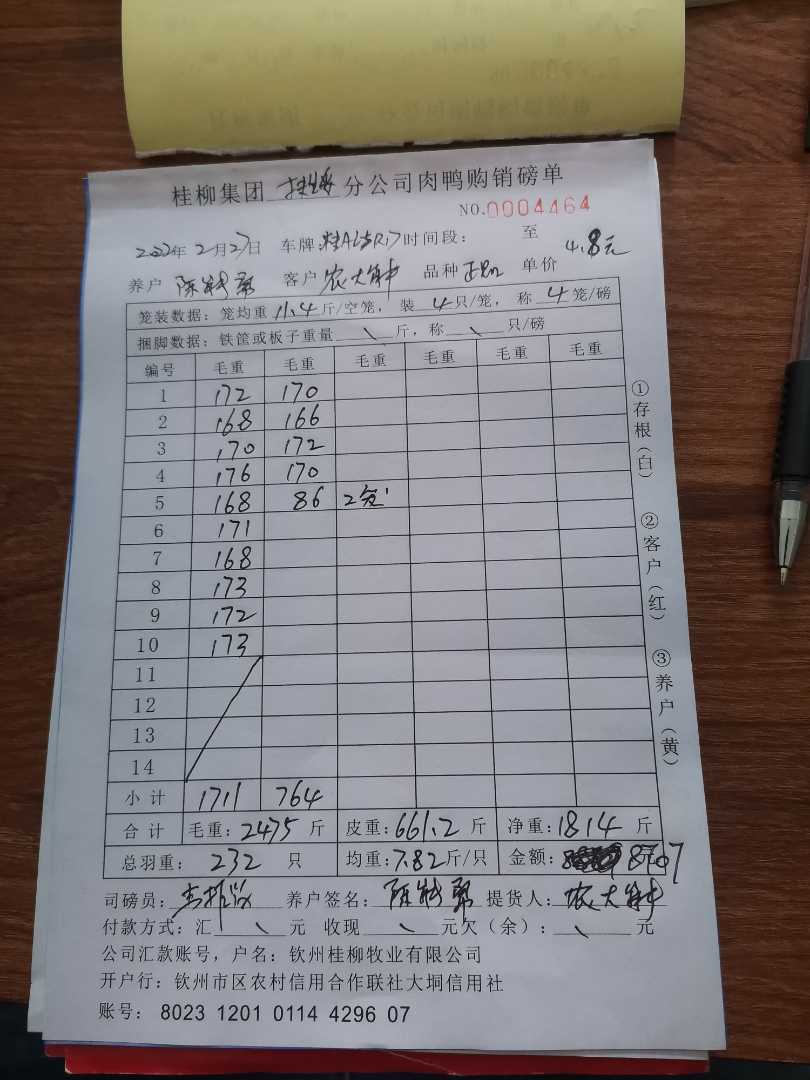 桂柳集团 分公司肉鸭购销磅单
NO.0004464
2022年2月27日 车牌:桂A65R17时间段: 至
养户 客户 农大 品种 单价 4.8元
笼装数据:笼均重 11.4 斤/空笼, 装 4 只/笼, 称 4 笼/磅
捆脚数据:铁筐或板子重量 \ 斤,称 \ 只/磅
编号 毛重 毛重 毛重 毛重 毛重 毛重
1 172 170
2 168 166
3 170 172
4 176 170
5 168 86 2
6 171
7 168
8 173
9 172
10 173
11
12
13
14
小计 1711 764
合计 毛重:2475 斤 皮重:661.2 斤 净重:1814 斤
总羽重: 232 只 均重:7.82斤/只 金额: 8707
司磅员: 养户签名: 陈 提货人: 农大
付款方式:汇 \ 元 收现 \ 元欠(余): \ 元
公司汇款账号,户名:钦州桂柳牧业有限公司
开户行:钦州市区农村信用合作联社大垌信用社
账号: 8023 1201 0114 4296 07
①存根(白)
②客户(红)
③养户(黄)